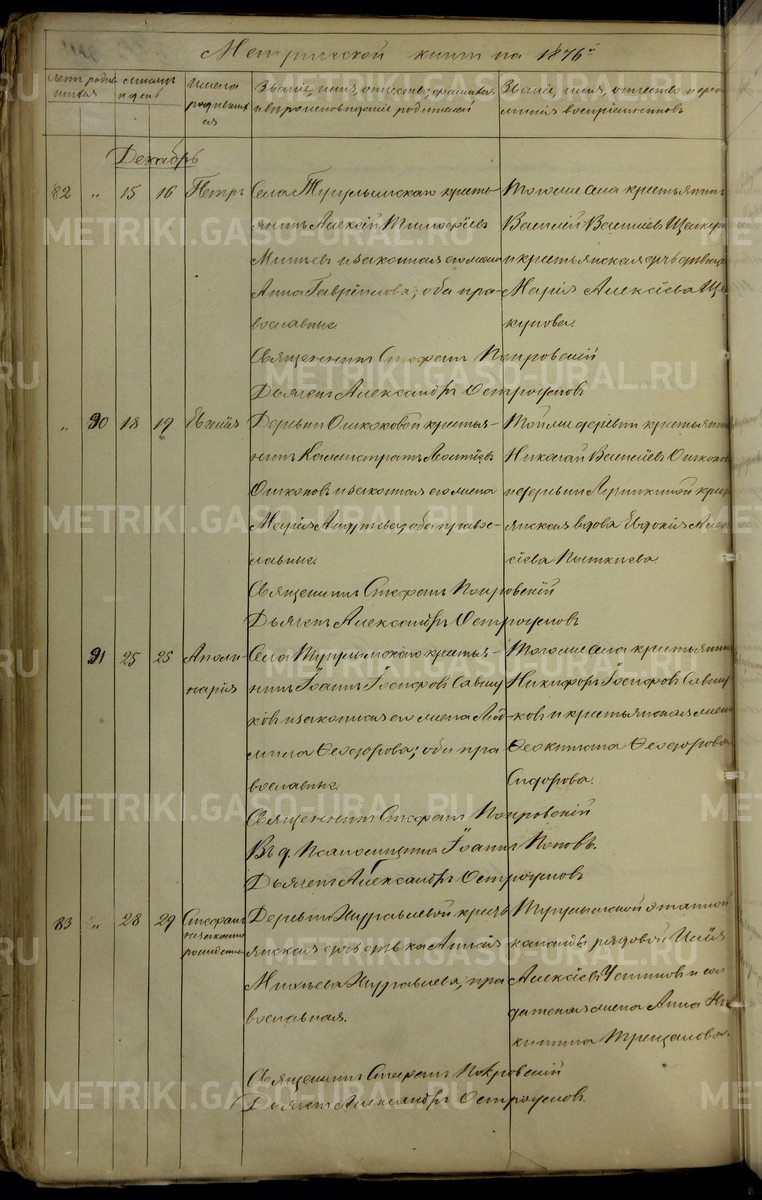 Метрической книги на 1876й
Счетъ родившихся
Мѣсяцъ и день
Имена родившихся
Званіе, имя, отчество, фамилія и вѣроисповѣданіе родителей
Званіе, имя, отчество и фамилія воспріемниковъ
Декабрь
82 " 15 16 Петръ
Села Тугулымскаго кресть-
янинъ Алексѣй Тимофѣевъ
и законная его жена
Анна Гавріилова; оба пра-
вославные.
Тогоже села крестьянинъ
Василій Василіевъ
и крестьянская дочь дѣвица
Марія Алексѣева
Священникъ Стефанъ Покровскій
Дьячекъ Александръ Остроумовъ
" 90 18 19 Евгенія
Деревни Ошкуковой крестья-
нинъ Калистратъ Леонтіевъ
и законная его жена
Марія Андреева; оба право-
славные.
Тойже деревни крестьянинъ
Николай Василіевъ
и деревни
янская вдова Евдокія Алек-
сіева
Священникъ Стефанъ Покровскій
Дьячекъ Александръ Остроумовъ
91 25 25 Аполи-
нарія
Села Тугулымскаго крестья-
нинъ Іоаннъ Іосифовъ
и законная его жена Люд-
мила Ѳеодорова; оба пра
вославные.
Тогоже села крестьянинъ
Никифоръ Іосифовъ
ковъ и крестьянская жена
Ѳеоктиста Ѳеодорова
Сидорова.
Священникъ Стефанъ Покровскій
Въ д. Псаломщика Іоаннъ Поповъ.
Дьячекъ Александръ Остроумовъ
83 " 28 29 Стефанъ
незаконно
рожденный
Деревни Журавлевой кресть
янская дочь дѣвка
Михѣева Журавлева, пра
вославная.
Тугулымской этапной
команды рядовой Илія
Алексѣевъ Устиновъ и сол
датская жена Анна Ни
китина Трещалова.
Священникъ Стефанъ Покровскій
Дьячекъ Александръ Остроумовъ.
METRIKI.GASO-URAL.RU